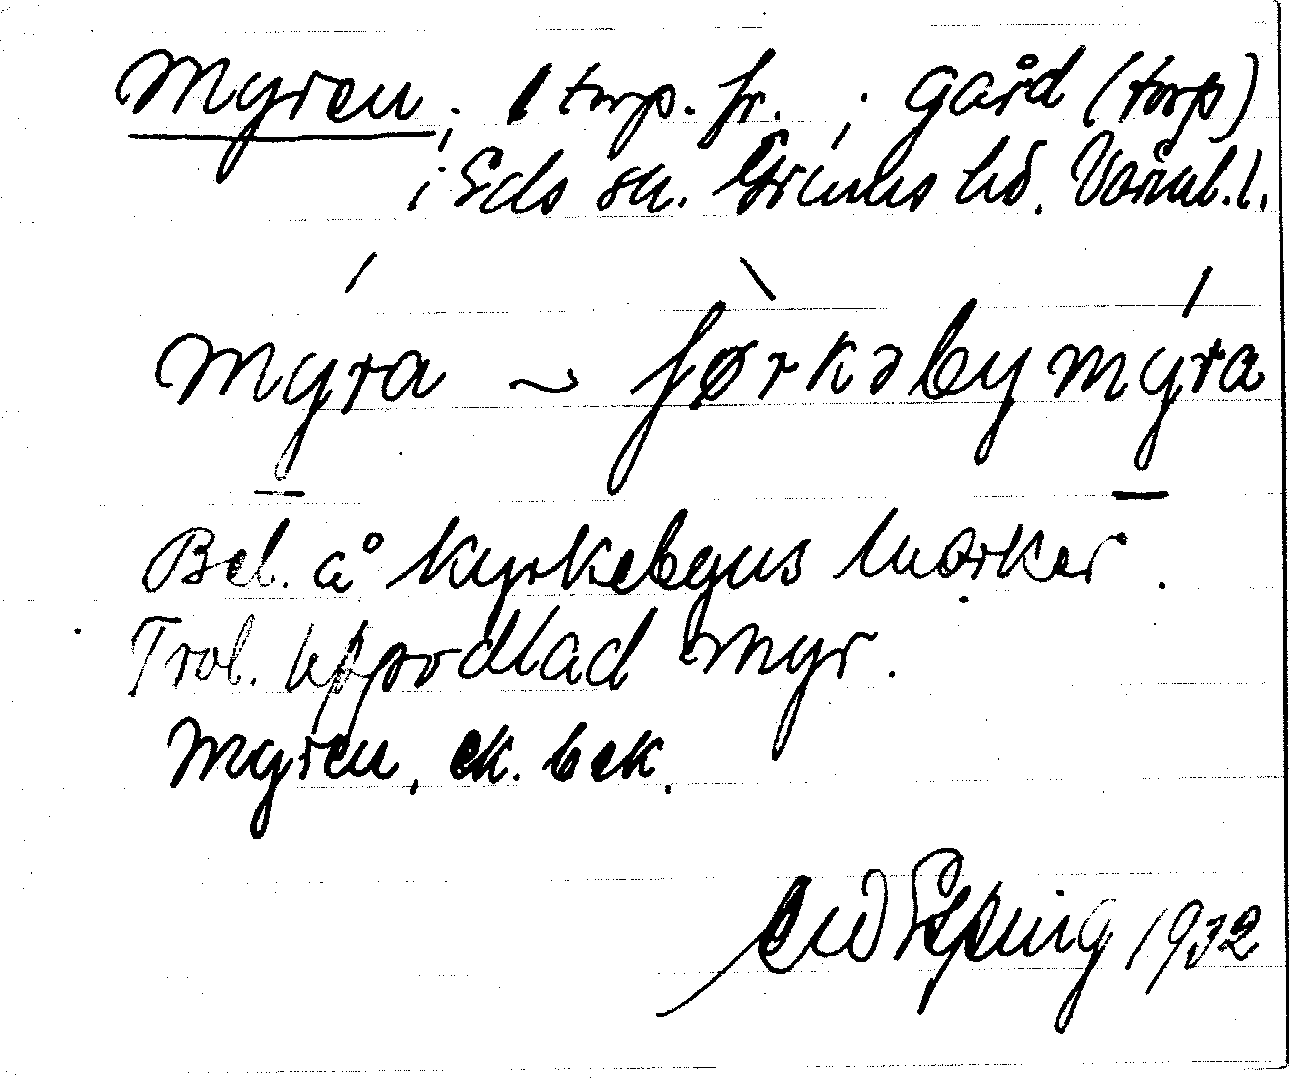 Myren, 1 torp. fr. ; gård (torp)
i Eds sn. Grums hd. Värml. l.
mýra ~ ſørkəbymýra
Bel. å Kyrkebyns marker.
Trol. uppodlad myr.
Myren, ek. bek.
1932